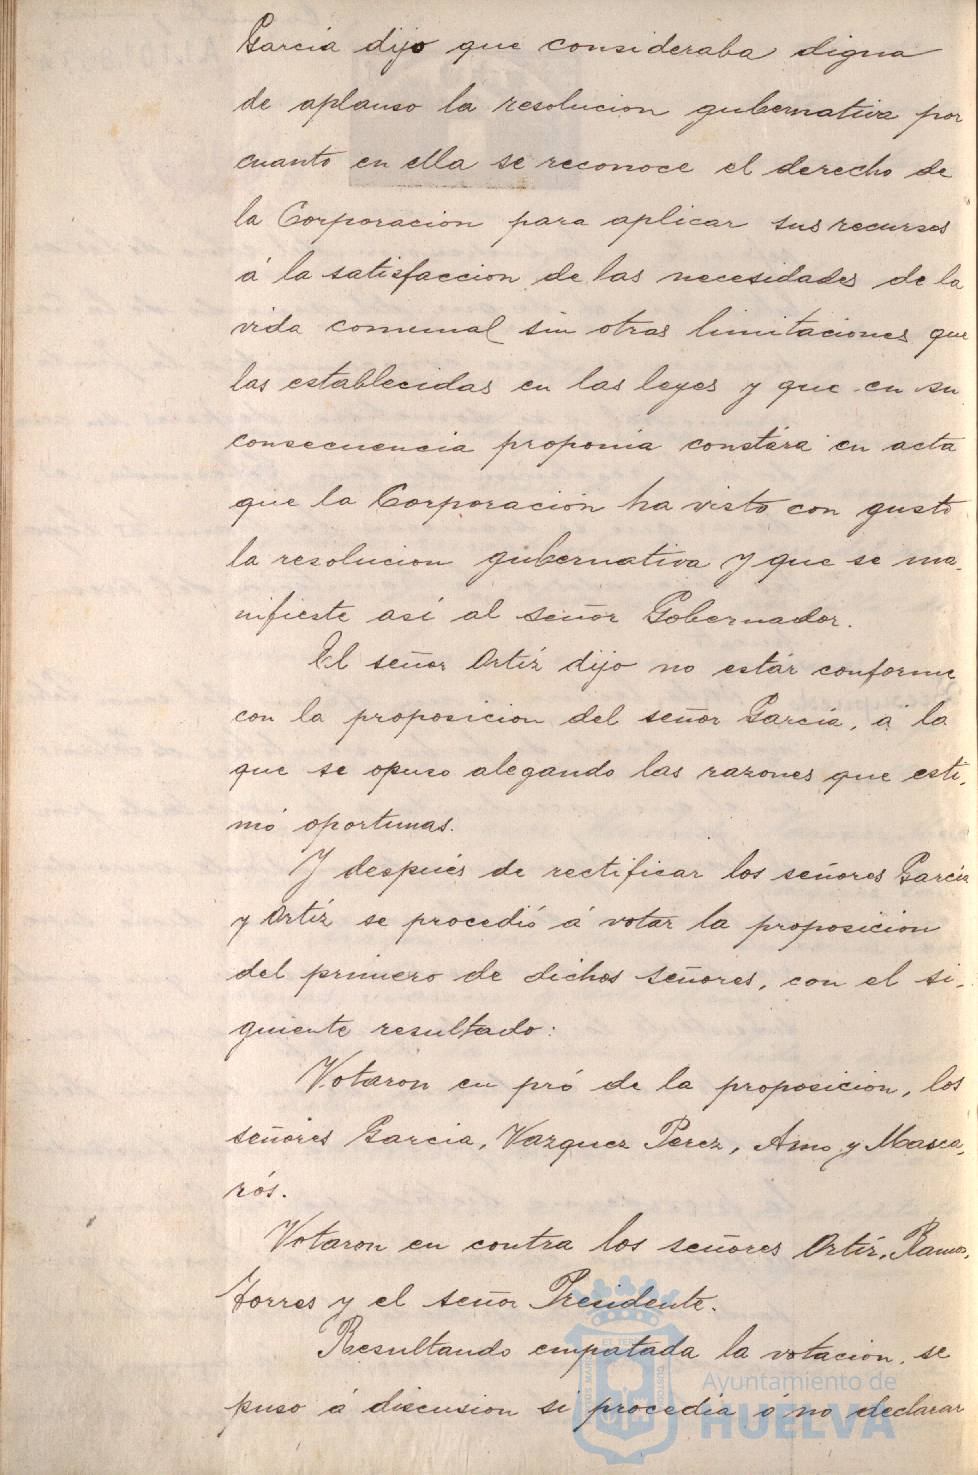 García dijo que consideraba digna
de aplauso la resolucion gubernativa por
cuanto en ella se reconoce el derecho de
la Corporación para aplicar sus recursos
á la satisfaccion de las necesidades de la
vida comunal sin otras limitaciones que
las establecidas en las leyes y que en su
consecuencia proponia constára en acta
que la Corporación ha visto con gusto
la resolucion gubernativa y que se ma-
nifieste así al señor Gobernador.
El señor Ortíz dijo no estár conforme
con la proposicion del señor García, á la
que se opuso alegando las razones que esti-
mó oportunas.
Y después de rectificar los señores García
y Ortíz se procedió á votar la proposicion
del primero de dichos señores, con el si-
guiente resultado:
Votaron en pró de la proposicion, los
señores Garcia, Vazquez Perez, Amo y Masca-
rós.
Votaron en contra los señores Ortíz, Ramos,
Torres y el señor Presidente.
Resultando empatada la votacion, se
puso á discusion si procedia ó no declarar
Ayuntamiento de
HUELVA